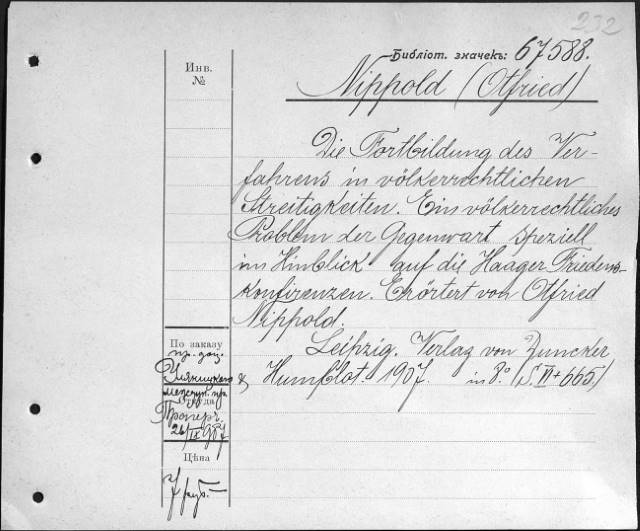 232
Библіот. значекъ: 67588.
Инв.
№
Nippold (Otfried)
Die Fortbildung des Ver-
fahrens in völkerrechtlichen
Streitigkeiten. Ein völkerrechtliches
Problem der Gegenwart speziell
im Hinblick auf die Haager Friedens-
konfirenzen. Erörtert von Otfried
Nippold.
Leipzig. Verlag von Duncker
& Humblot. 1907. in 8.° (S. VI + 665)
По заказу
пр. доц.
Проверг.
26/IX 907
Цѣна
7 руб.